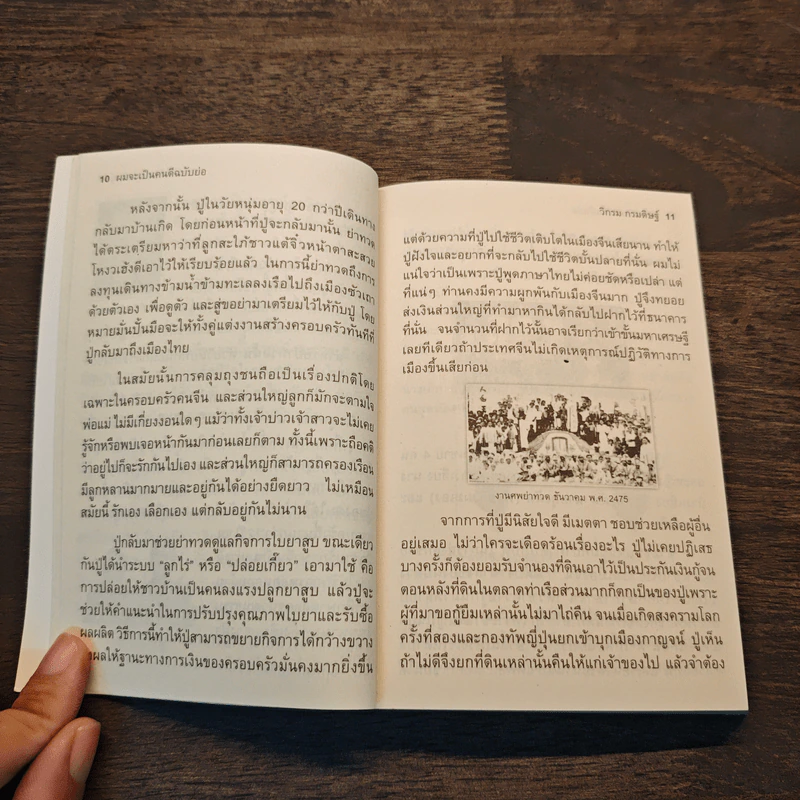 10 ผมจะเป็นคนดีฉบับย่อ
หลังจากนั้น ปู่ในวัยหนุ่มอายุ 20 กว่าปีเดินทาง
กลับมาบ้านเกิด โดยก่อนหน้าที่ปู่จะกลับมานั้น ย่าทวด
ได้ตระเตรียมหาว่าที่ลูกสะใภ้ชาวแต้จิ๋วหน้าตาสะสวย
โหงวเฮ้งดีเอาไว้ให้เรียบร้อยแล้ว ในการนี้ย่าทวดถึงการ
ลงทุนเดินทางข้ามน้ำข้ามทะเลลงเรือไปถึงเมืองซัวเถา
ด้วยตัวเอง เพื่อดูตัว และสู่ขอย่ามาเตรียมไว้ให้กับปู่ โดย
หมายมั่นปั้นมือจะให้ทั้งคู่แต่งงานสร้างครอบครัวทันทีที่
ปู่กลับมาถึงเมืองไทย
ในสมัยนั้นการคลุมถุงชนถือเป็นเรื่องปกติโดย
เฉพาะในครอบครัวคนจีน และส่วนใหญ่ลูกก็มักจะตามใจ
พ่อแม่ ไม่มีเกี่ยงงอนใดๆ แม้ว่าทั้งเจ้าบ่าวเจ้าสาวจะไม่เคย
รู้จักหรือพบเจอหน้ากันมาก่อนเลยก็ตาม ทั้งนี้เพราะถือคติ
ว่าอยู่ไปก็จะรักกันไปเอง และส่วนใหญ่ก็สามารถครองเรือน
มีลูกหลานมากมายและอยู่กันได้อย่างยืดยาว ไม่เหมือน
สมัยนี้ รักเอง เลือกเอง แต่กลับอยู่กันไม่นาน
ปู่กลับมาช่วยย่าทวดดูแลกิจการใบยาสูบ ขณะเดียว
กันปู่ได้นำระบบ “ลูกไร่” หรือ “ปล่อยเกี๊ยว” เอามาใช้ คือ
การปล่อยให้ชาวบ้านเป็นคนลงแรงปลูกยาสูบ แล้วปู่จะ
ช่วยให้คำแนะนำในการปรับปรุงคุณภาพใบยาและรับซื้อ
ผลผลิต วิธีการนี้ทำให้ปู่สามารถขยายกิจการได้กว้างขวาง
ผลให้ฐานะทางการเงินของครอบครัวมั่นคงมากยิ่งขึ้น
วิกรม กรมดิษฐ์ 11
แต่ด้วยความที่ปู่ไปใช้ชีวิตเติบโตในเมืองจีนเสียนาน ทำให้
ปู่ฝังใจและอยากที่จะกลับไปใช้ชีวิตบั้นปลายที่นั่น ผมไม่
แน่ใจว่าเป็นเพราะปู่พูดภาษาไทยไม่ค่อยชัดหรือเปล่า แต่
ที่แน่ๆ ท่านคงมีความผูกพันกับเมืองจีนมาก ปู่จึงทยอย
ส่งเงินส่วนใหญ่ที่ทำมาหากินได้กลับไปฝากไว้ที่ธนาคาร
ที่นั่น จนจำนวนที่ฝากไว้นั้นอาจเรียกว่าเข้าขั้นมหาเศรษฐี
เลยทีเดียวถ้าประเทศจีนไม่เกิดเหตุการณ์ปฏิวัติทางการ
เมืองขึ้นเสียก่อน
งานศพย่าทวด ธันวาคม พ.ศ. 2475
จากการที่ปู่มีนิสัยใจดี มีเมตตา ชอบช่วยเหลือผู้อื่น
อยู่เสมอ ไม่ว่าใครจะเดือดร้อนเรื่องอะไร ปู่ไม่เคยปฏิเสธ
บางครั้งก็ต้องยอมรับจำนองที่ดินเอาไว้เป็นประกันเงินกู้จน
ตอนหลังที่ดินในตลาดท่าเรือส่วนมากก็ตกเป็นของปู่เพราะ
ผู้ที่มาขอกู้ยืมเหล่านั้นไม่มาไถ่คืน จนเมื่อเกิดสงครามโลก
ครั้งที่สองและกองทัพญี่ปุ่นยกเข้าบุกเมืองกาญจน์ ปู่เห็น
ถ้าไม่ดีจึงยกที่ดินเหล่านั้นคืนให้แก่เจ้าของไป แล้วจำต้อง